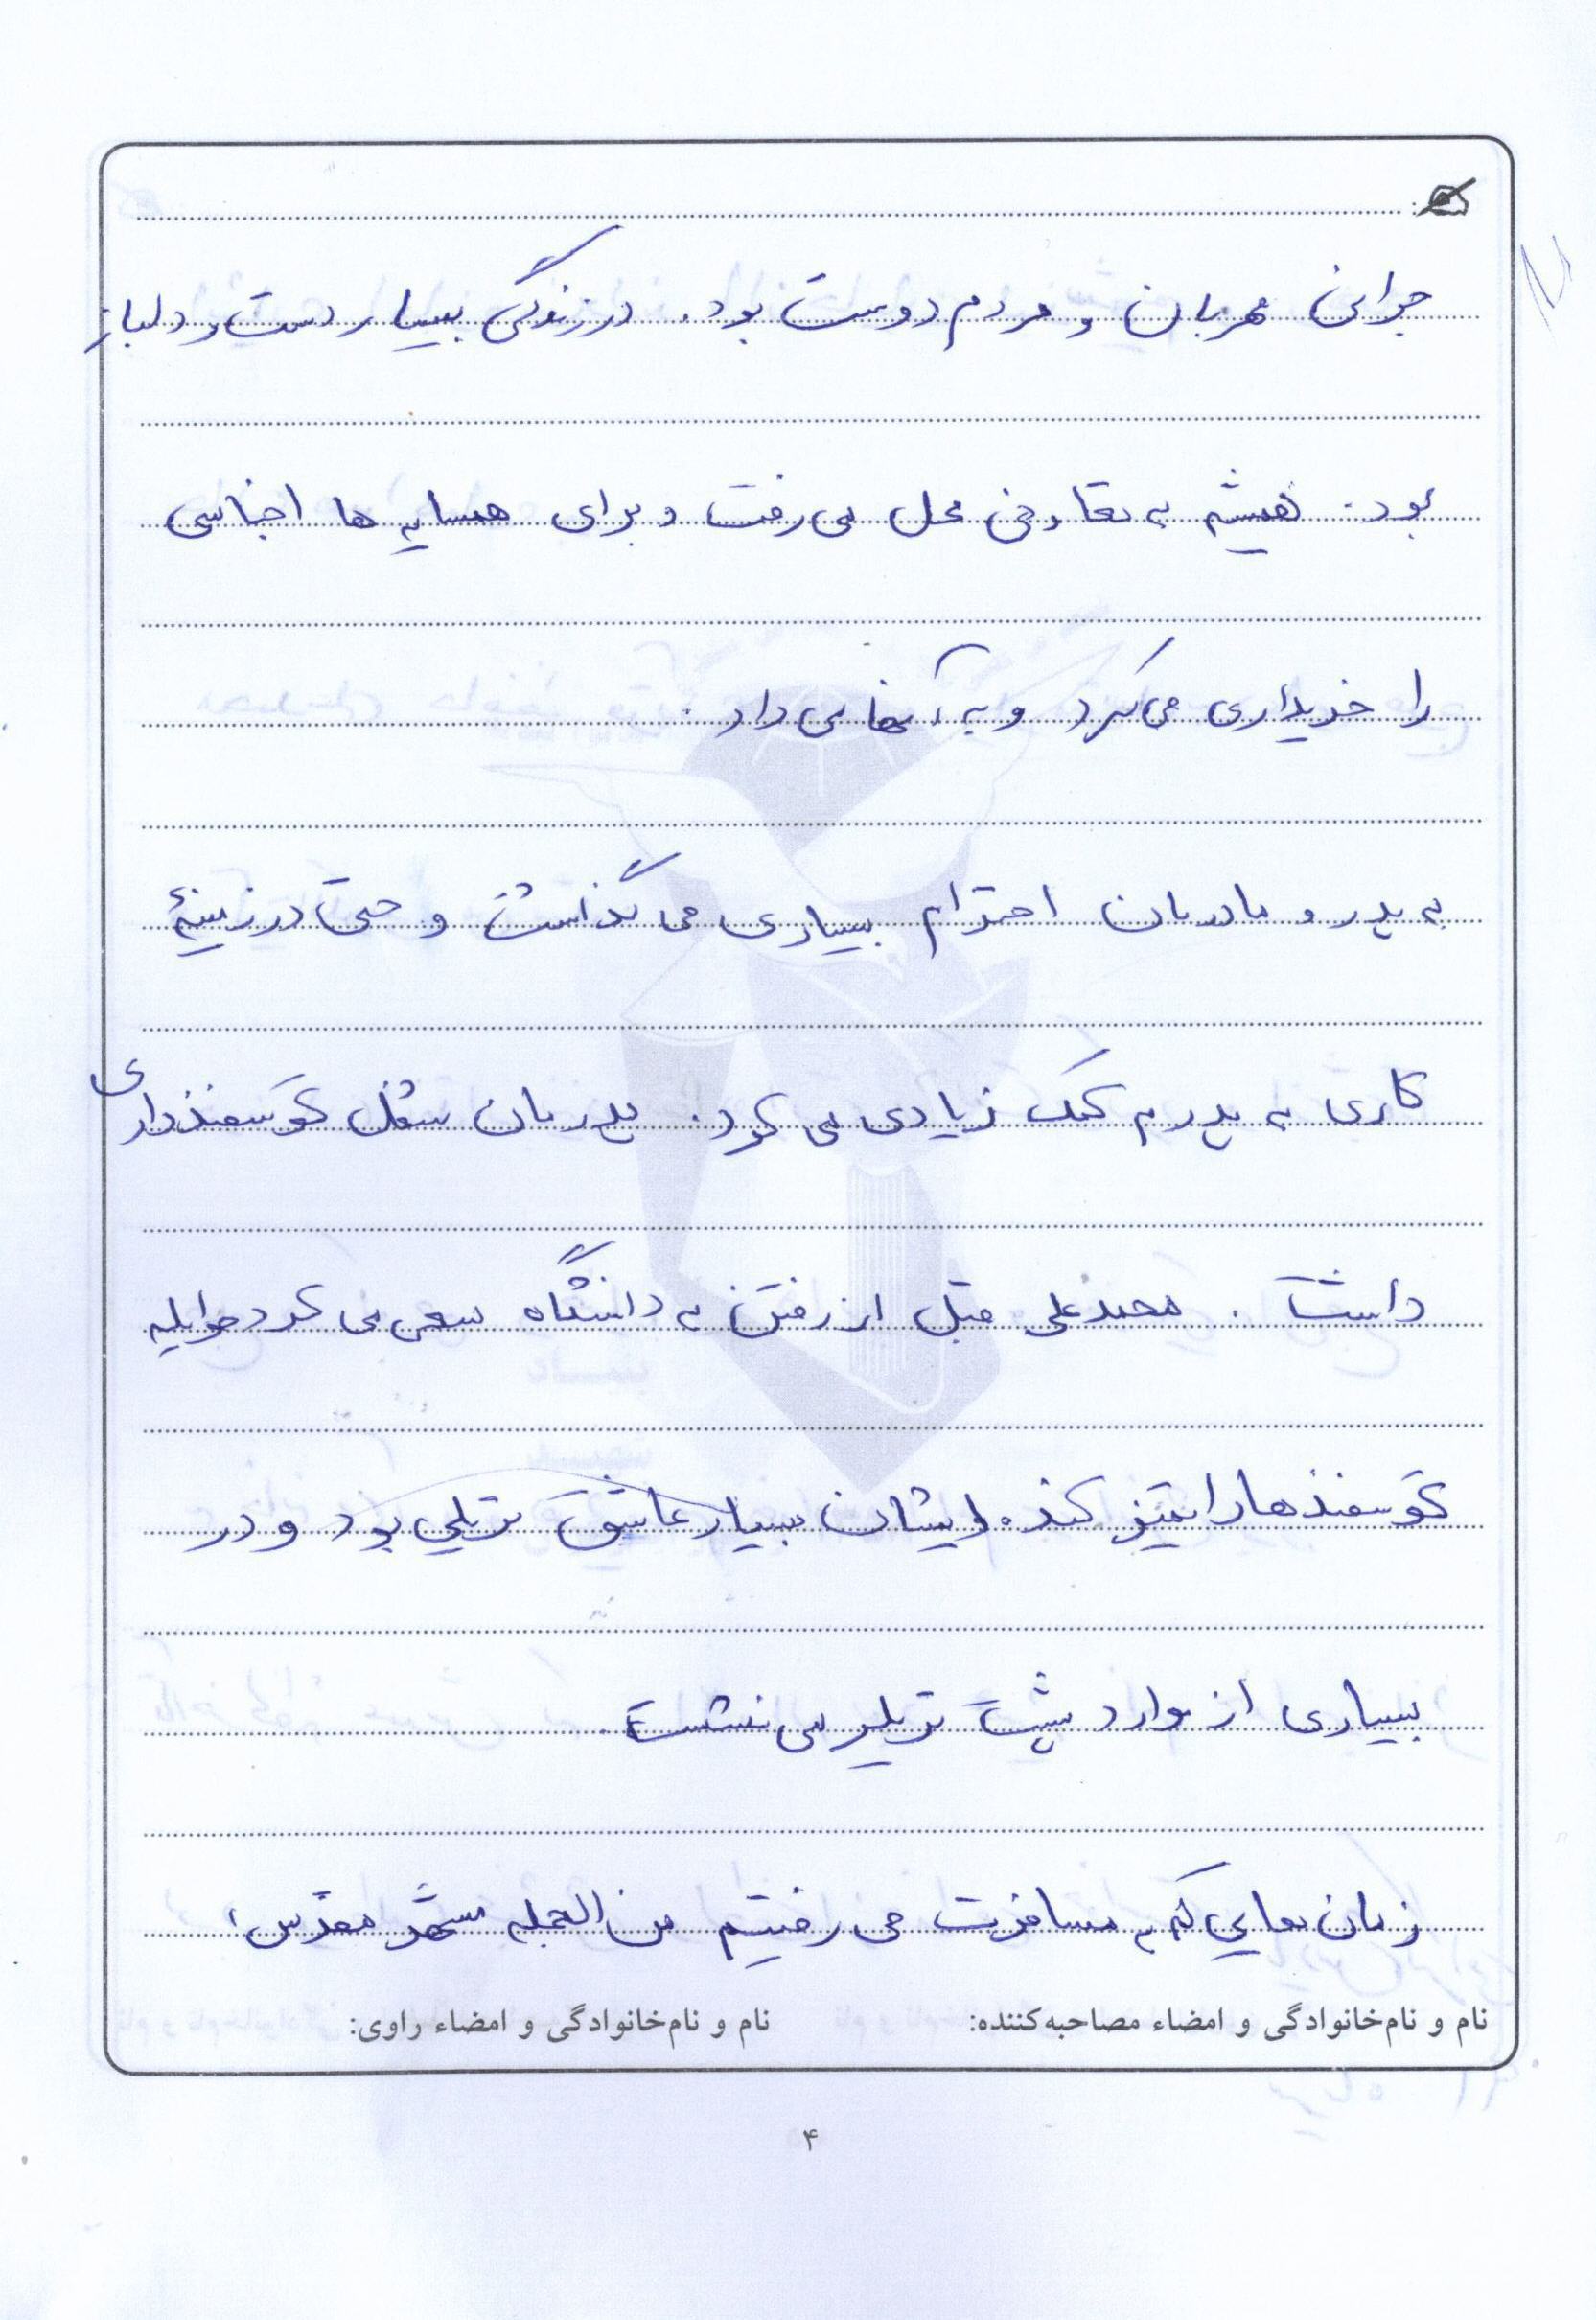 جوانی مهربان و مردم دوست بود. در زندگی بسیار دست و دلباز
بود. همیشه به تعاونی محل می رفت و برای همسایه ها اجناسی
را خریداری می کرد و به آنها می داد.
به پدر و مادرمان احترام بسیاری می گذاشت و حتی در زمینهٔ
کاری به پدرم کمک زیادی می کرد. پدرمان شغل گوسفندداری
داشت. محمدعلی قبل از رفتن به دانشگاه سعی می کرد
گوسفندها را تمیز کند. ایشان بسیار عاشق تریلی بود و در
بسیاری از موارد پشت تریلر می نشست.
زمان هایی که به مسافرت می رفتیم من الجمله مشهد مقدس،
نام و نام‌خانوادگی و امضاء مصاحبه‌کننده:
نام و نام‌خانوادگی و امضاء راوی:
۴